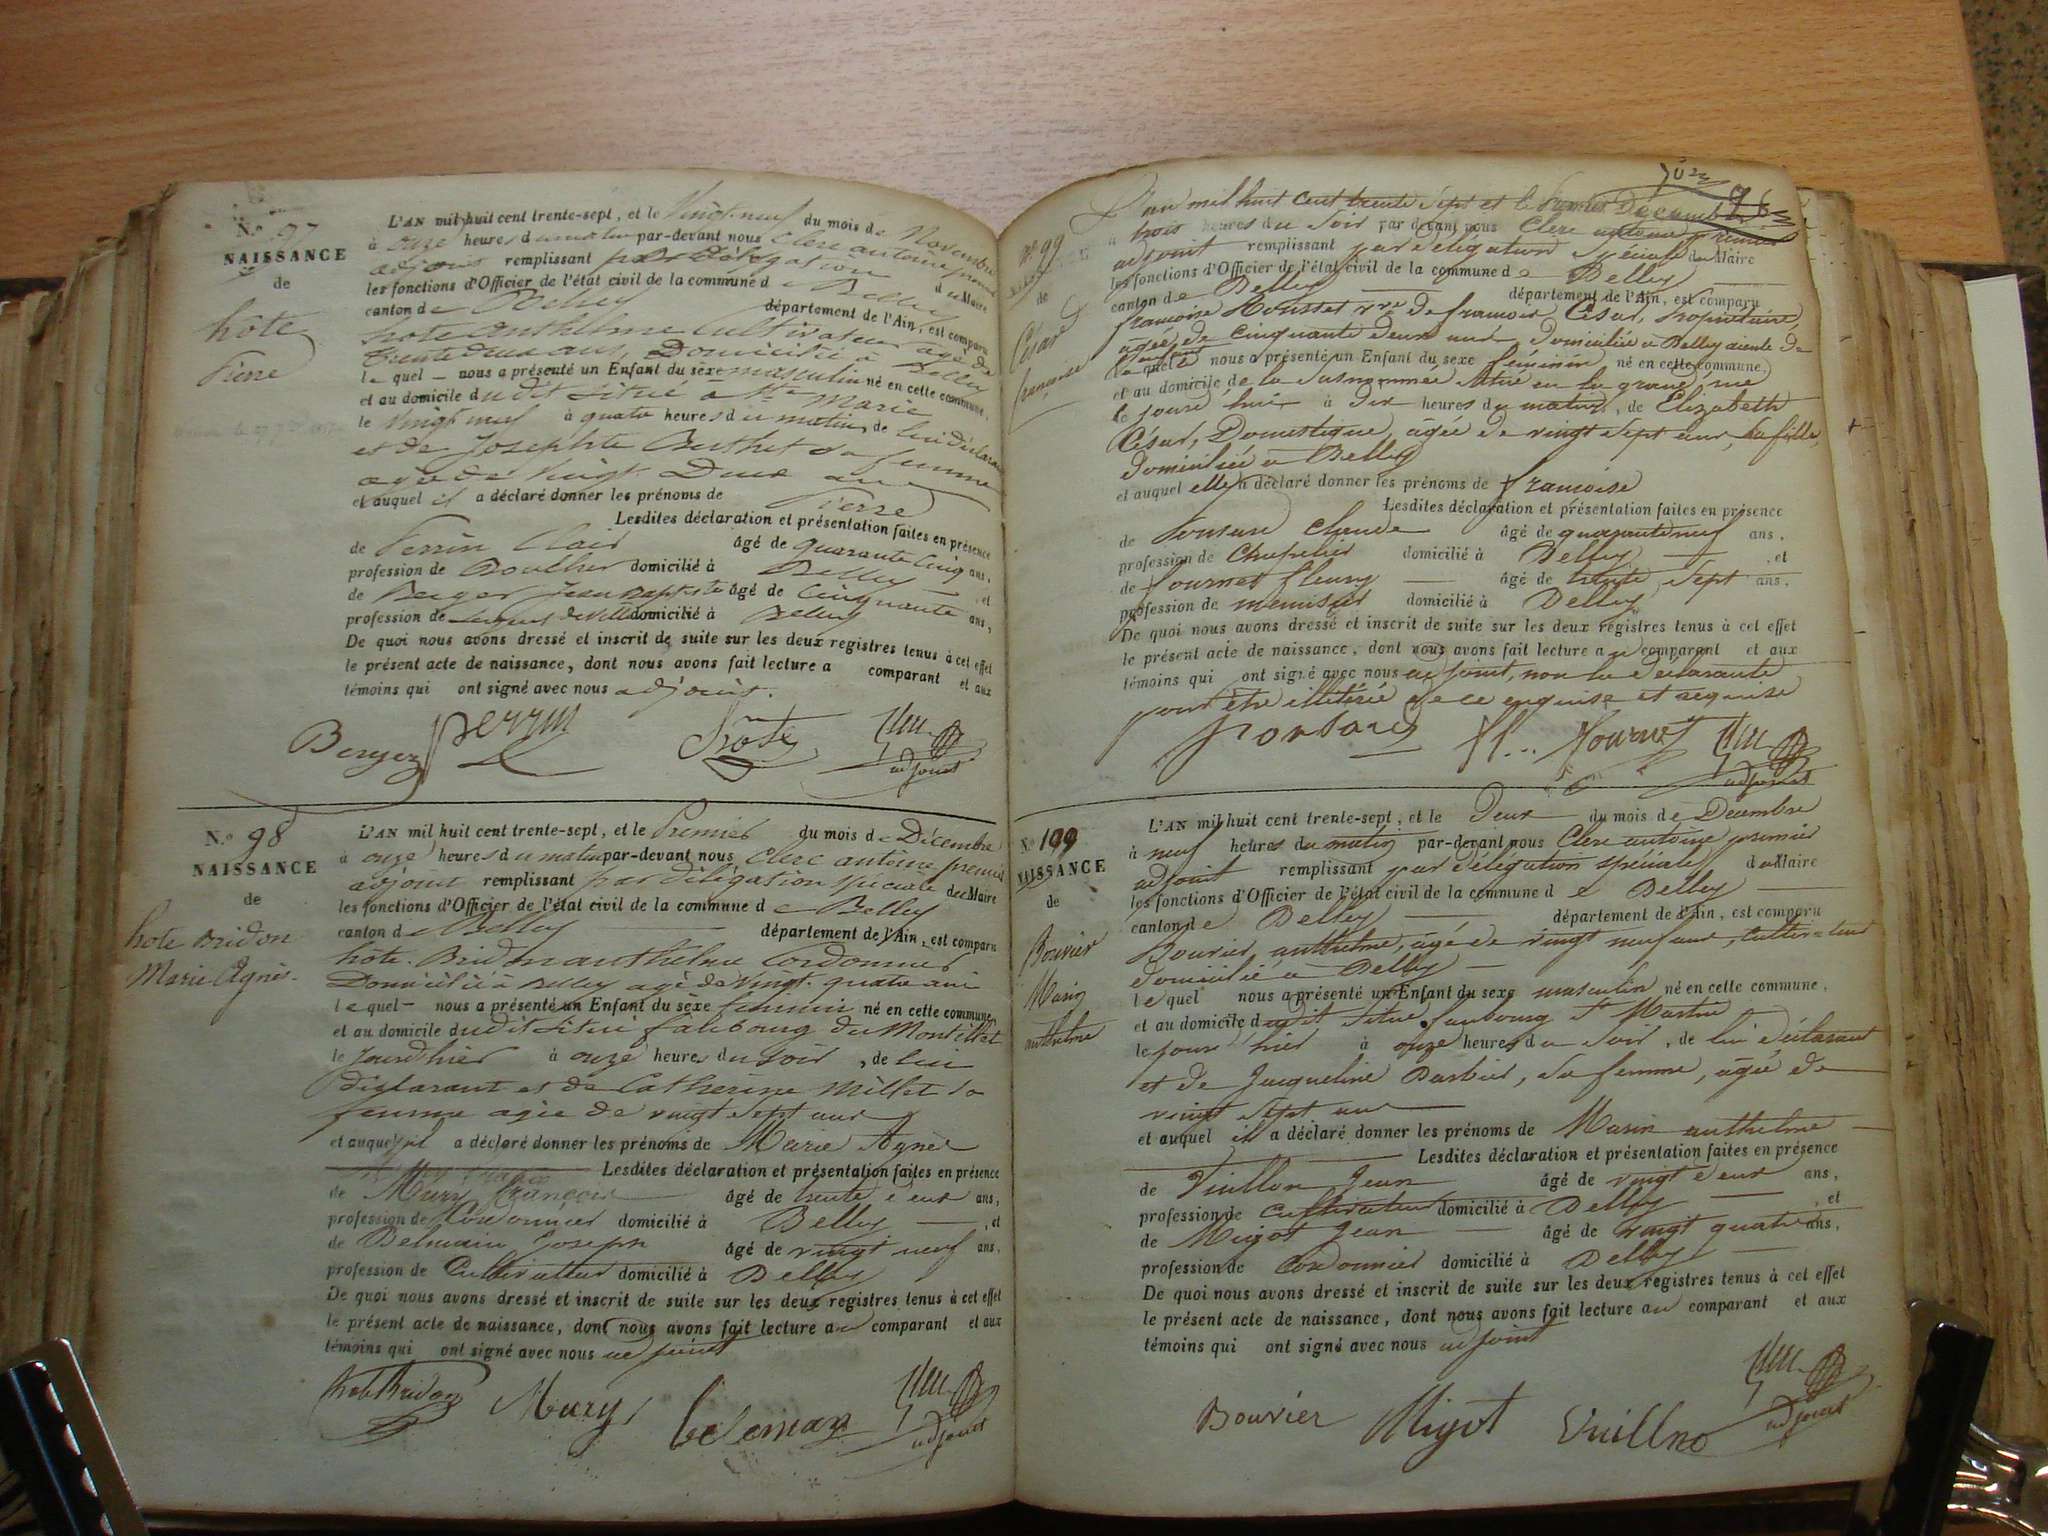 N.° 97
NAISSANCE
de
hôte
Pierre
L'AN mil huit cent trente-sept, et le Vingt-neuf du mois de Novembre
à onze heures du matin par-devant nous Clerc antoine premier
adjoint remplissant par délégation du Maire
les fonctions d'Officier de l'état civil de la commune de Belley
canton de Belley département de l'Ain, est comparu
hôte anthelme Cultivateur agé de
trente deux ans, Domicilié à Belley
lequel nous a présenté un Enfant du sexe masculin né en cette commune,
et au domicile dudit situé à Ste Marie
le vingt neuf à quatre heures du matin, de lui déclarant
et de Josephte Berthet sa femme
agée de Vingt Deux ans
et auquel il a déclaré donner les prénoms de Pierre
Lesdites déclaration et présentation faites en présence
de Perrin Clair âgé de quarante Cinq ans,
profession de Boucher domicilié à Belley, et
de Berger Jean Baptiste âgé de Cinquante ans,
profession de Sergent de ville domicilié à Belley
De quoi nous avons dressé et inscrit de suite sur les deux registres tenus à cet effet
le présent acte de naissance, dont nous avons fait lecture a comparant et aux
témoins qui ont signé avec nous adjoint.
Berger Perrin hote Clerc
adjoint
N.° 98
NAISSANCE
de
hote Bridon
Marie Agnès.
L'AN mil huit cent trente-sept, et le Premier du mois de Décembre
à onze heures du matin par-devant nous Clerc antoine premier
adjoint remplissant par délégation spéciale du Maire
les fonctions d'Officier de l'état civil de la commune de Belley
canton de Belley département de l'Ain, est comparu
hôte. Bridon anthelme Cordonnier
Domicilié à Belley agé de vingt-quatre ans
lequel nous a présenté un Enfant du sexe féminin né en cette commune,
et au domicile dudit situé faubourg du Montillet
le jourd'hier à onze heures du soir, de lui
déclarant et de Catherine Millet sa
femme agée de vingt sept ans
et auquel il a déclaré donner les prénoms de Marie Agnès
Lesdites déclaration et présentation faites en présence
de Mury françois âgé de trente deux ans,
profession de Cordonnier domicilié à Belley, et
de Belmain Joseph âgé de vingt neuf ans,
profession de Cultivateur domicilié à Belley
De quoi nous avons dressé et inscrit de suite sur les deux registres tenus à cet effet
le présent acte de naissance, dont nous avons fait lecture au comparant et aux
témoins qui ont signé avec nous adjoint
hote Bridon Mury Clerc
adjoint
96
N° 99
de
César
françoise
L'an mil huit cent trente sept et le Premier Décembre
à trois heures du soir par devant nous Clerc antoine premier
adjoint remplissant par délégation spéciale du Maire
les fonctions d'Officier de l'état civil de la commune de Belley
canton de Belley département de l'Ain, est comparu
françoise Rousset vve de françois César, propriétaire,
agée de cinquante deux ans domiciliée à Belley aieule de
laquelle nous a présenté un Enfant du sexe féminin né en cette commune,
et au domicile de la susnommée situé en la grand rue
le jourd'hui à dix heures du matin, de Elizabeth
César, Domestique, agée de vingt sept ans, sa fille,
domiciliée à Belley
et auquel elle a déclaré donner les prénoms de françoise
Lesdites déclaration et présentation faites en présence
de Ponsard Claude âgé de quarante neuf ans,
profession de Chapelier domicilié à Belley, et
de fournet fleury âgé de trente sept ans,
profession de menuisier domicilié à Belley
De quoi nous avons dressé et inscrit de suite sur les deux registres tenus à cet effet
le présent acte de naissance, dont nous avons fait lecture au comparant et aux
témoins qui ont signé avec nous adjoint, non la déclarante
pour être illitérée de ce enquise et requise
Ponsard fl.. fournet Clerc
adjoint
N.° 100
NAISSANCE
de
Bouvier
Marin
anthelme
L'AN mil huit cent trente-sept, et le Deux du mois de Décembre
à neuf heures du matin par-devant nous Clerc antoine premier
adjoint remplissant par délégation spéciale du Maire
les fonctions d'Officier de l'état civil de la commune de Belley
canton de Belley département de l'Ain, est comparu
Bouvier anthelme, agé de vingt neuf ans, cultivateur
domicilié à Belley
lequel nous a présenté un Enfant du sexe masculin né en cette commune,
et au domicile dudit situé faubourg St Martin
le jour hier à onze heures du soir, de lui déclarant
et de Jacqueline Barbier, sa femme, agée de
vingt sept ans
et auquel il a déclaré donner les prénoms de Marin anthelme
Lesdites déclaration et présentation faites en présence
de Vuillon Jean âgé de vingt deux ans,
profession de Cultivateur domicilié à Belley, et
de Migot Jean âgé de vingt quatre ans,
profession de Cordonnier domicilié à Belley
De quoi nous avons dressé et inscrit de suite sur les deux registres tenus à cet effet
le présent acte de naissance, dont nous avons fait lecture au comparant et aux
témoins qui ont signé avec nous adjoint
Bouvier Migot Vuillno Clerc
adjoint